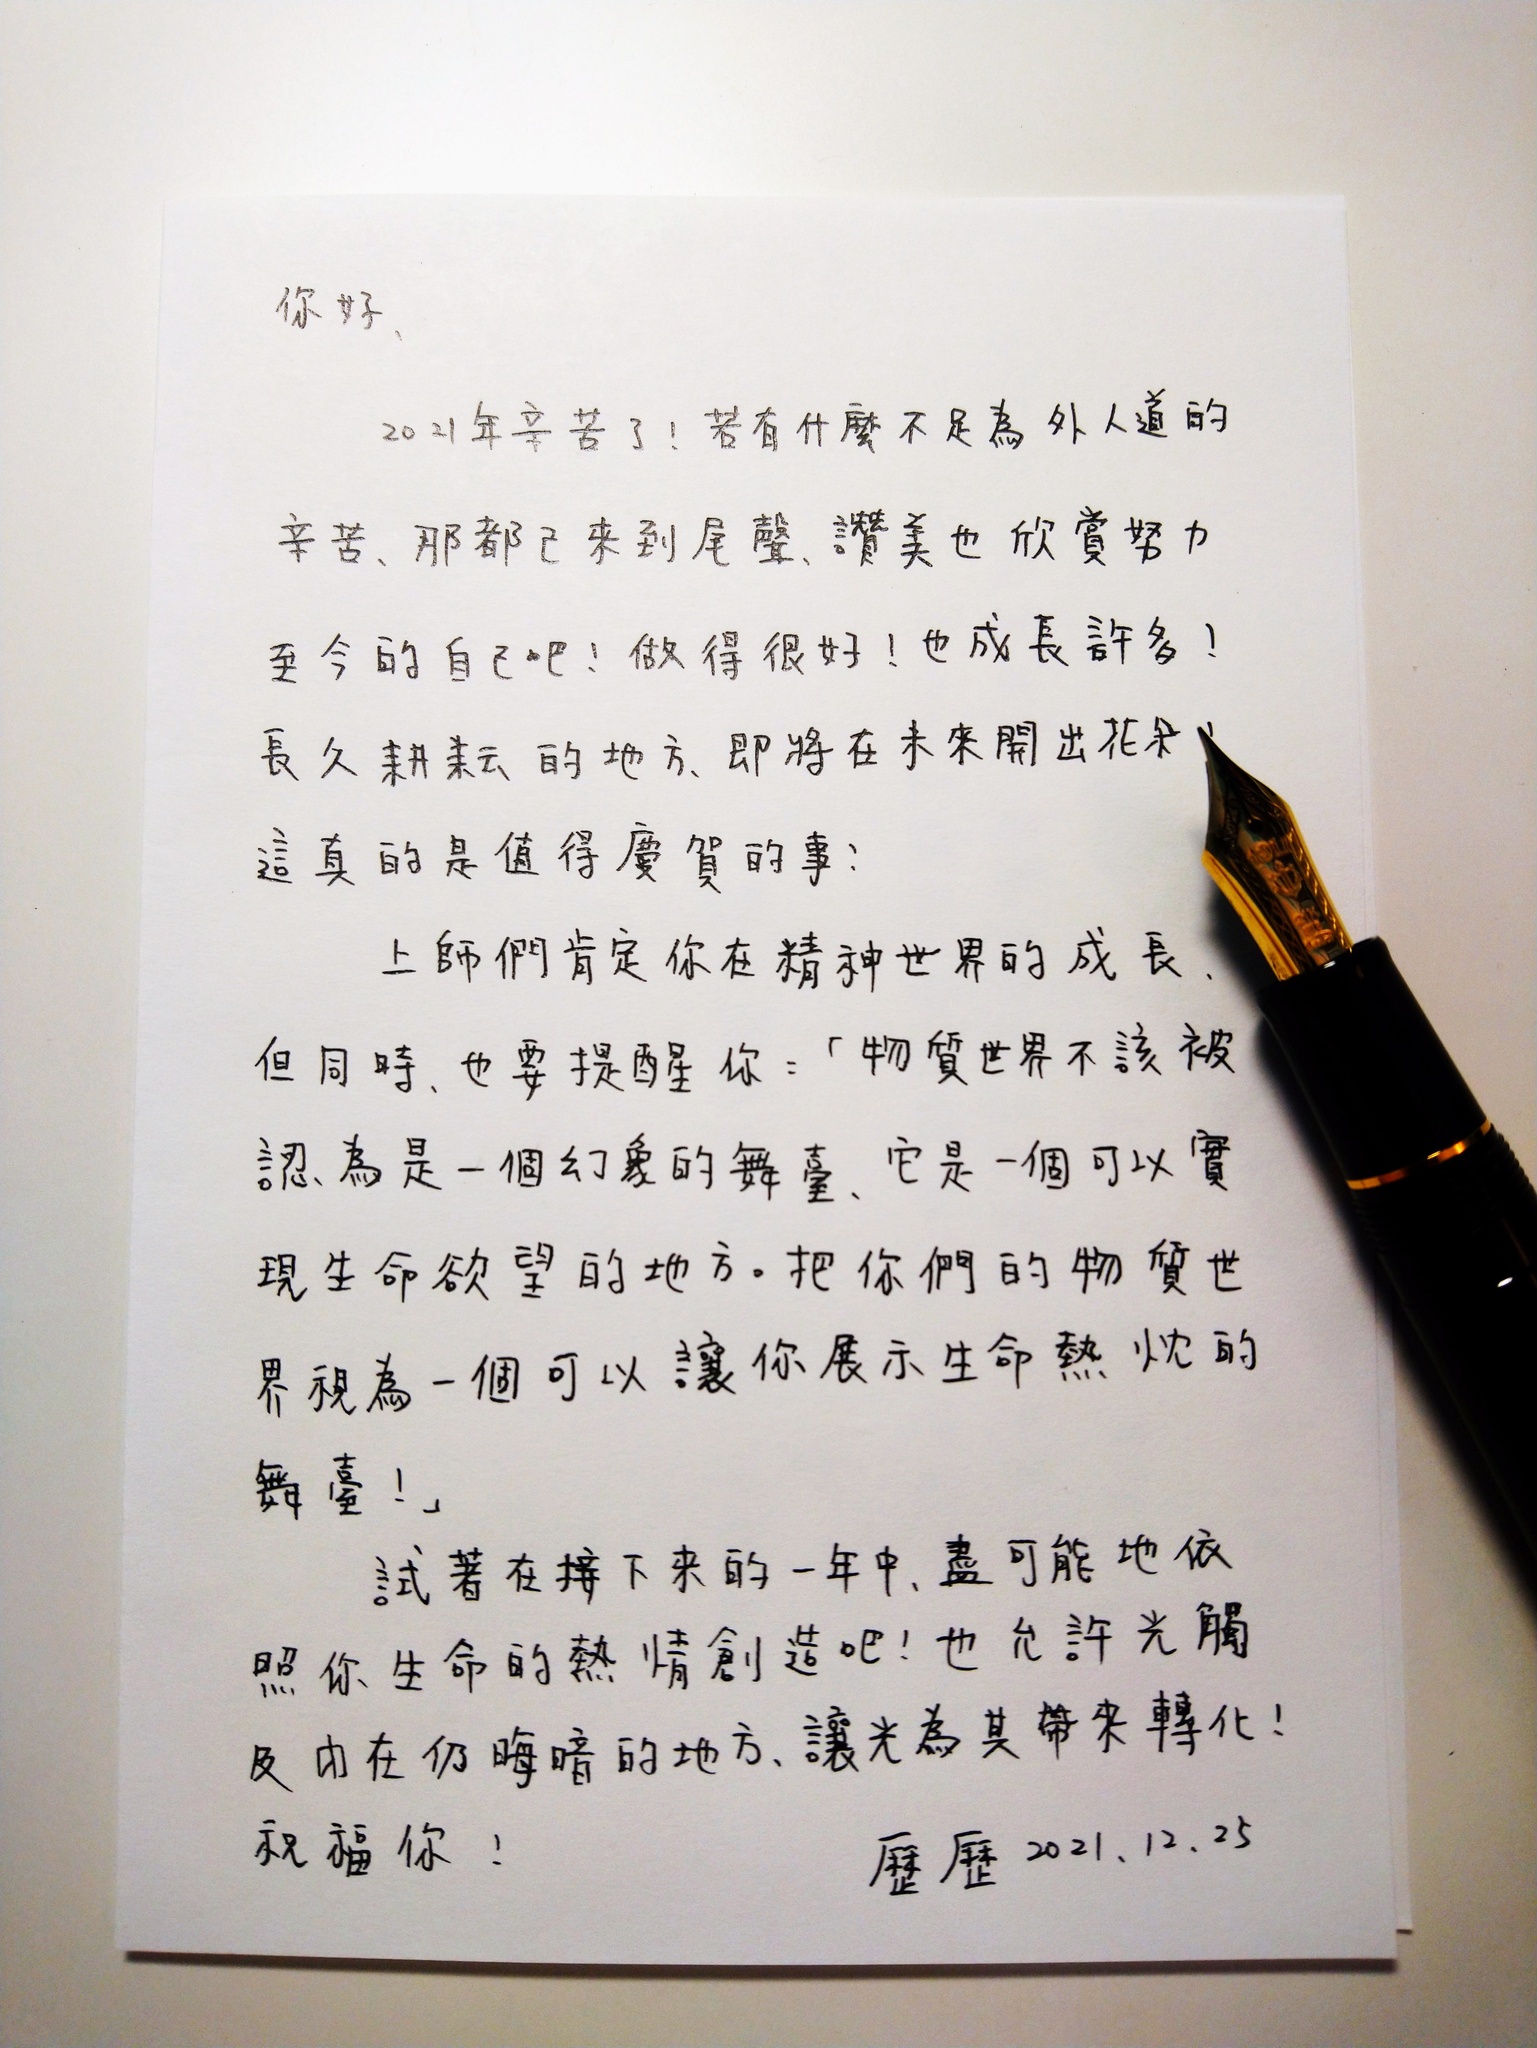 你好、
2021年辛苦了！若有什麼不足為外人道的
辛苦、那都已來到尾聲、讚美也欣賞努力
至今的自己吧！做得很好！也成長許多！
長久耕耘的地方、即將在未來開出花朵、
這真的是值得慶賀的事！
上師們肯定你在精神世界的成長、
但同時、也要提醒你：「物質世界不該被
認為是一個幻象的舞臺、它是一個可以實
現生命欲望的地方。把你們的物質世
界視為一個可以讓你展示生命熱忱的
舞臺！」
試著在接下來的一年中、盡可能地依
照你生命的熱情創造吧！也允許光觸
及內在仍晦暗的地方、讓光為其帶來轉化！
祝福你！
歷歷 2021、12、25